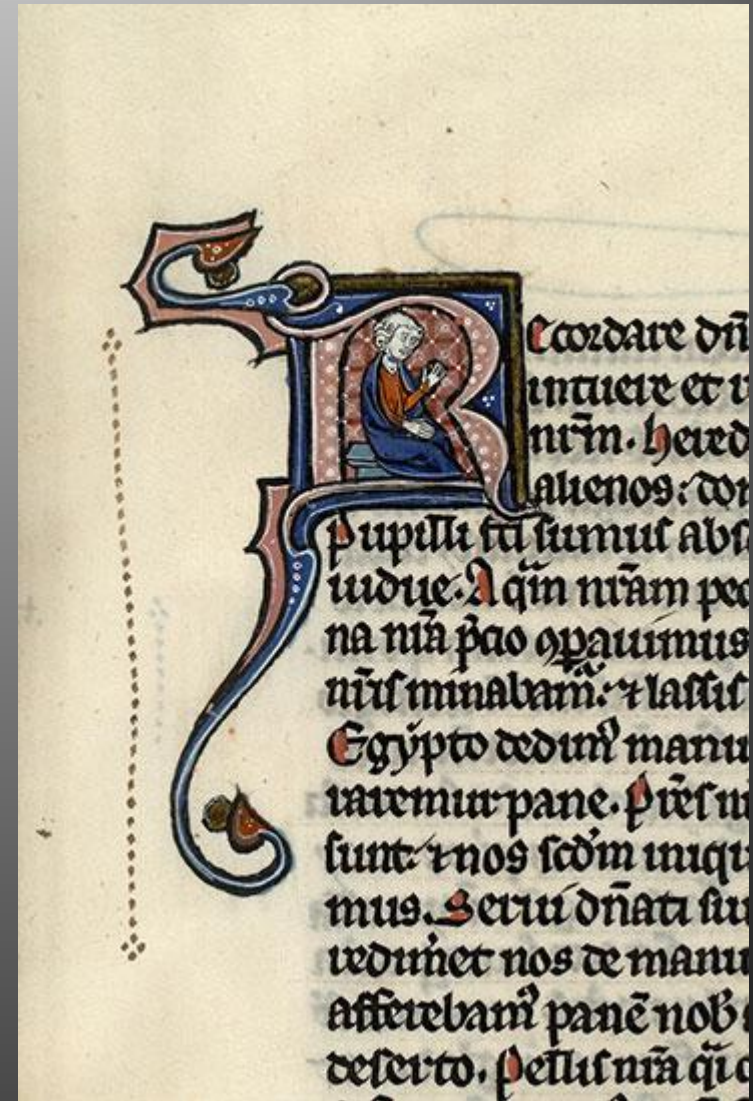 Rccordare dn̄
intuere et
nr̄m. hered
alienos: do
pupilli fc̄i sumus abs
uidue. A qm̄ nr̄am pec
na nr̄a p̄cio ꝯpauimus
nr̄is minabam̄: ⁊ lassis
Egypto dedimꝰ manu
raremur pane. Pr̄es n
sunt: ⁊ nos scd̄m iniqi
mus. Serui dn̄ati su
redimet nos de manu
afferebamꝰ panē nob̄
deserto. Pellis nr̄a q̄i